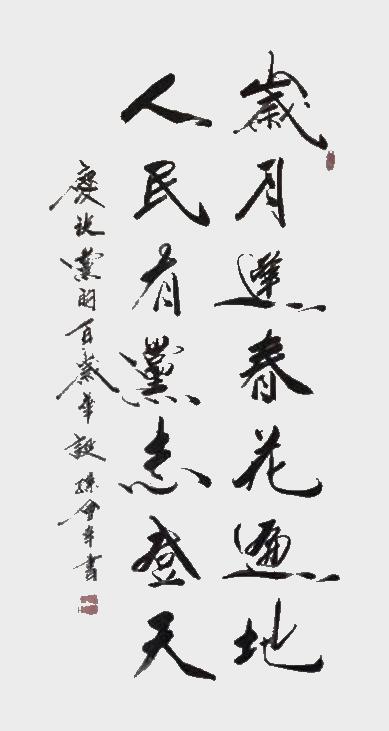 歲月逢春花遍地
人民有黨志登天
慶祝黨的百歲華誕孫會年書